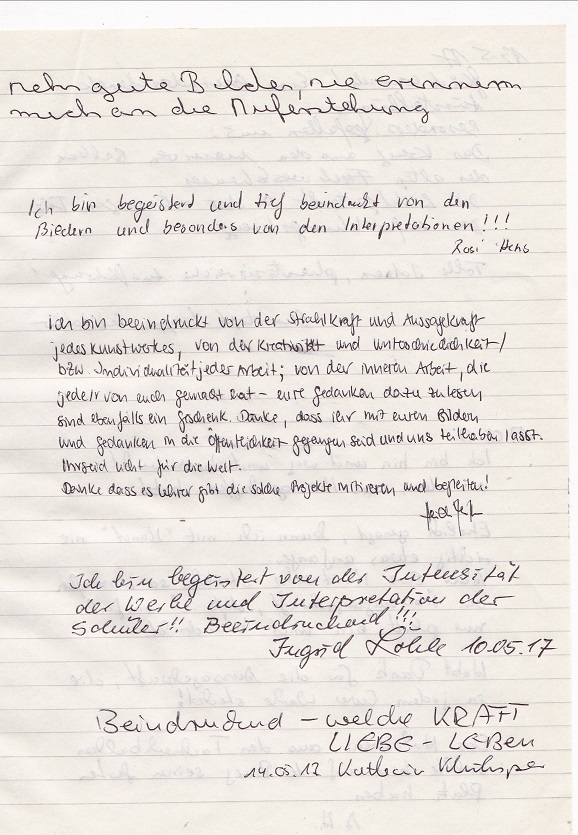 sehr gute Bilder, sie erinnern
mich an die Auferstehung
Ich bin begeistert und tief beeindruckt von den
Biedern und besonders von den Interpretationen!!!
Rosi
ich bin beeindruckt von der Strahlkraft und Aussagekraft
jedes Kunstwerkes, von der Kreativität und Unterschiedlichkeit/
bzw. Individualität jeder Arbeit; von der inneren Arbeit, die
jede/r von euch gemacht hat - eure Gedanken dazu zu lesen
sind ebenfalls ein Geschenk. Danke, dass ihr mit euren Bildern
und Gedanken in die Öffentlichkeit gegangen seid und uns teilhaben lasst.
Ihr seid Licht für die Welt.
Danke dass es Lehrer gibt die solche Projekte initiieren und begleiten!
Ich bin begeistert von der Intensität
der Werke und Interpretation der
Schüler!! Beeindruckend!!!
Ingrid 10.05.17
Beindruckend - welche KRAFT
LIEBE - LEBEN
14.05.17 Kathrin